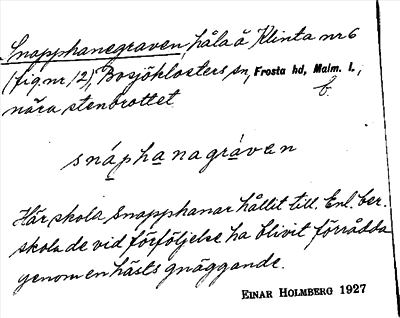 Snapphanegraven, håla å Klinta nr 6
(fig. nr 12), Bosjöklosters sn, Frosta hd, Malm. l.,
nära stenbrottet. b.
snáphanagráven
Här skola Snapphanar hållit till. Enl. ber.
skola de vid förföljelse ha blivit förrådda
genom en hästs gnäggande.
EINAR HOLMBERG 1927